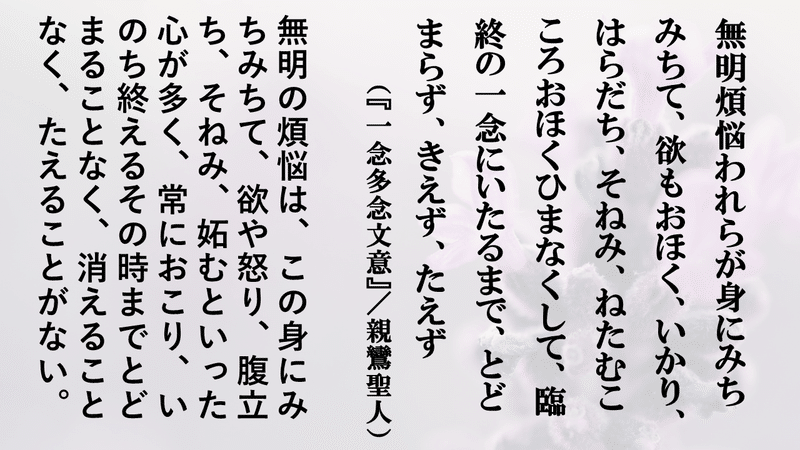 無明煩悩われらが身にみち
みちて、欲もおほく、いかり、
はらだち、そねみ、ねたむこ
ころおほくひまなくして、臨
終の一念にいたるまで、とど
まらず、きえず、たえず
（『一念多念文意』／親鸞聖人）
無明の煩悩は、この身にみ
ちみちて、欲や怒り、腹立
ち、そねみ、妬むといった
心が多く、常におこり、い
のち終えるその時までとど
まることなく、消えること
なく、たえることがない。